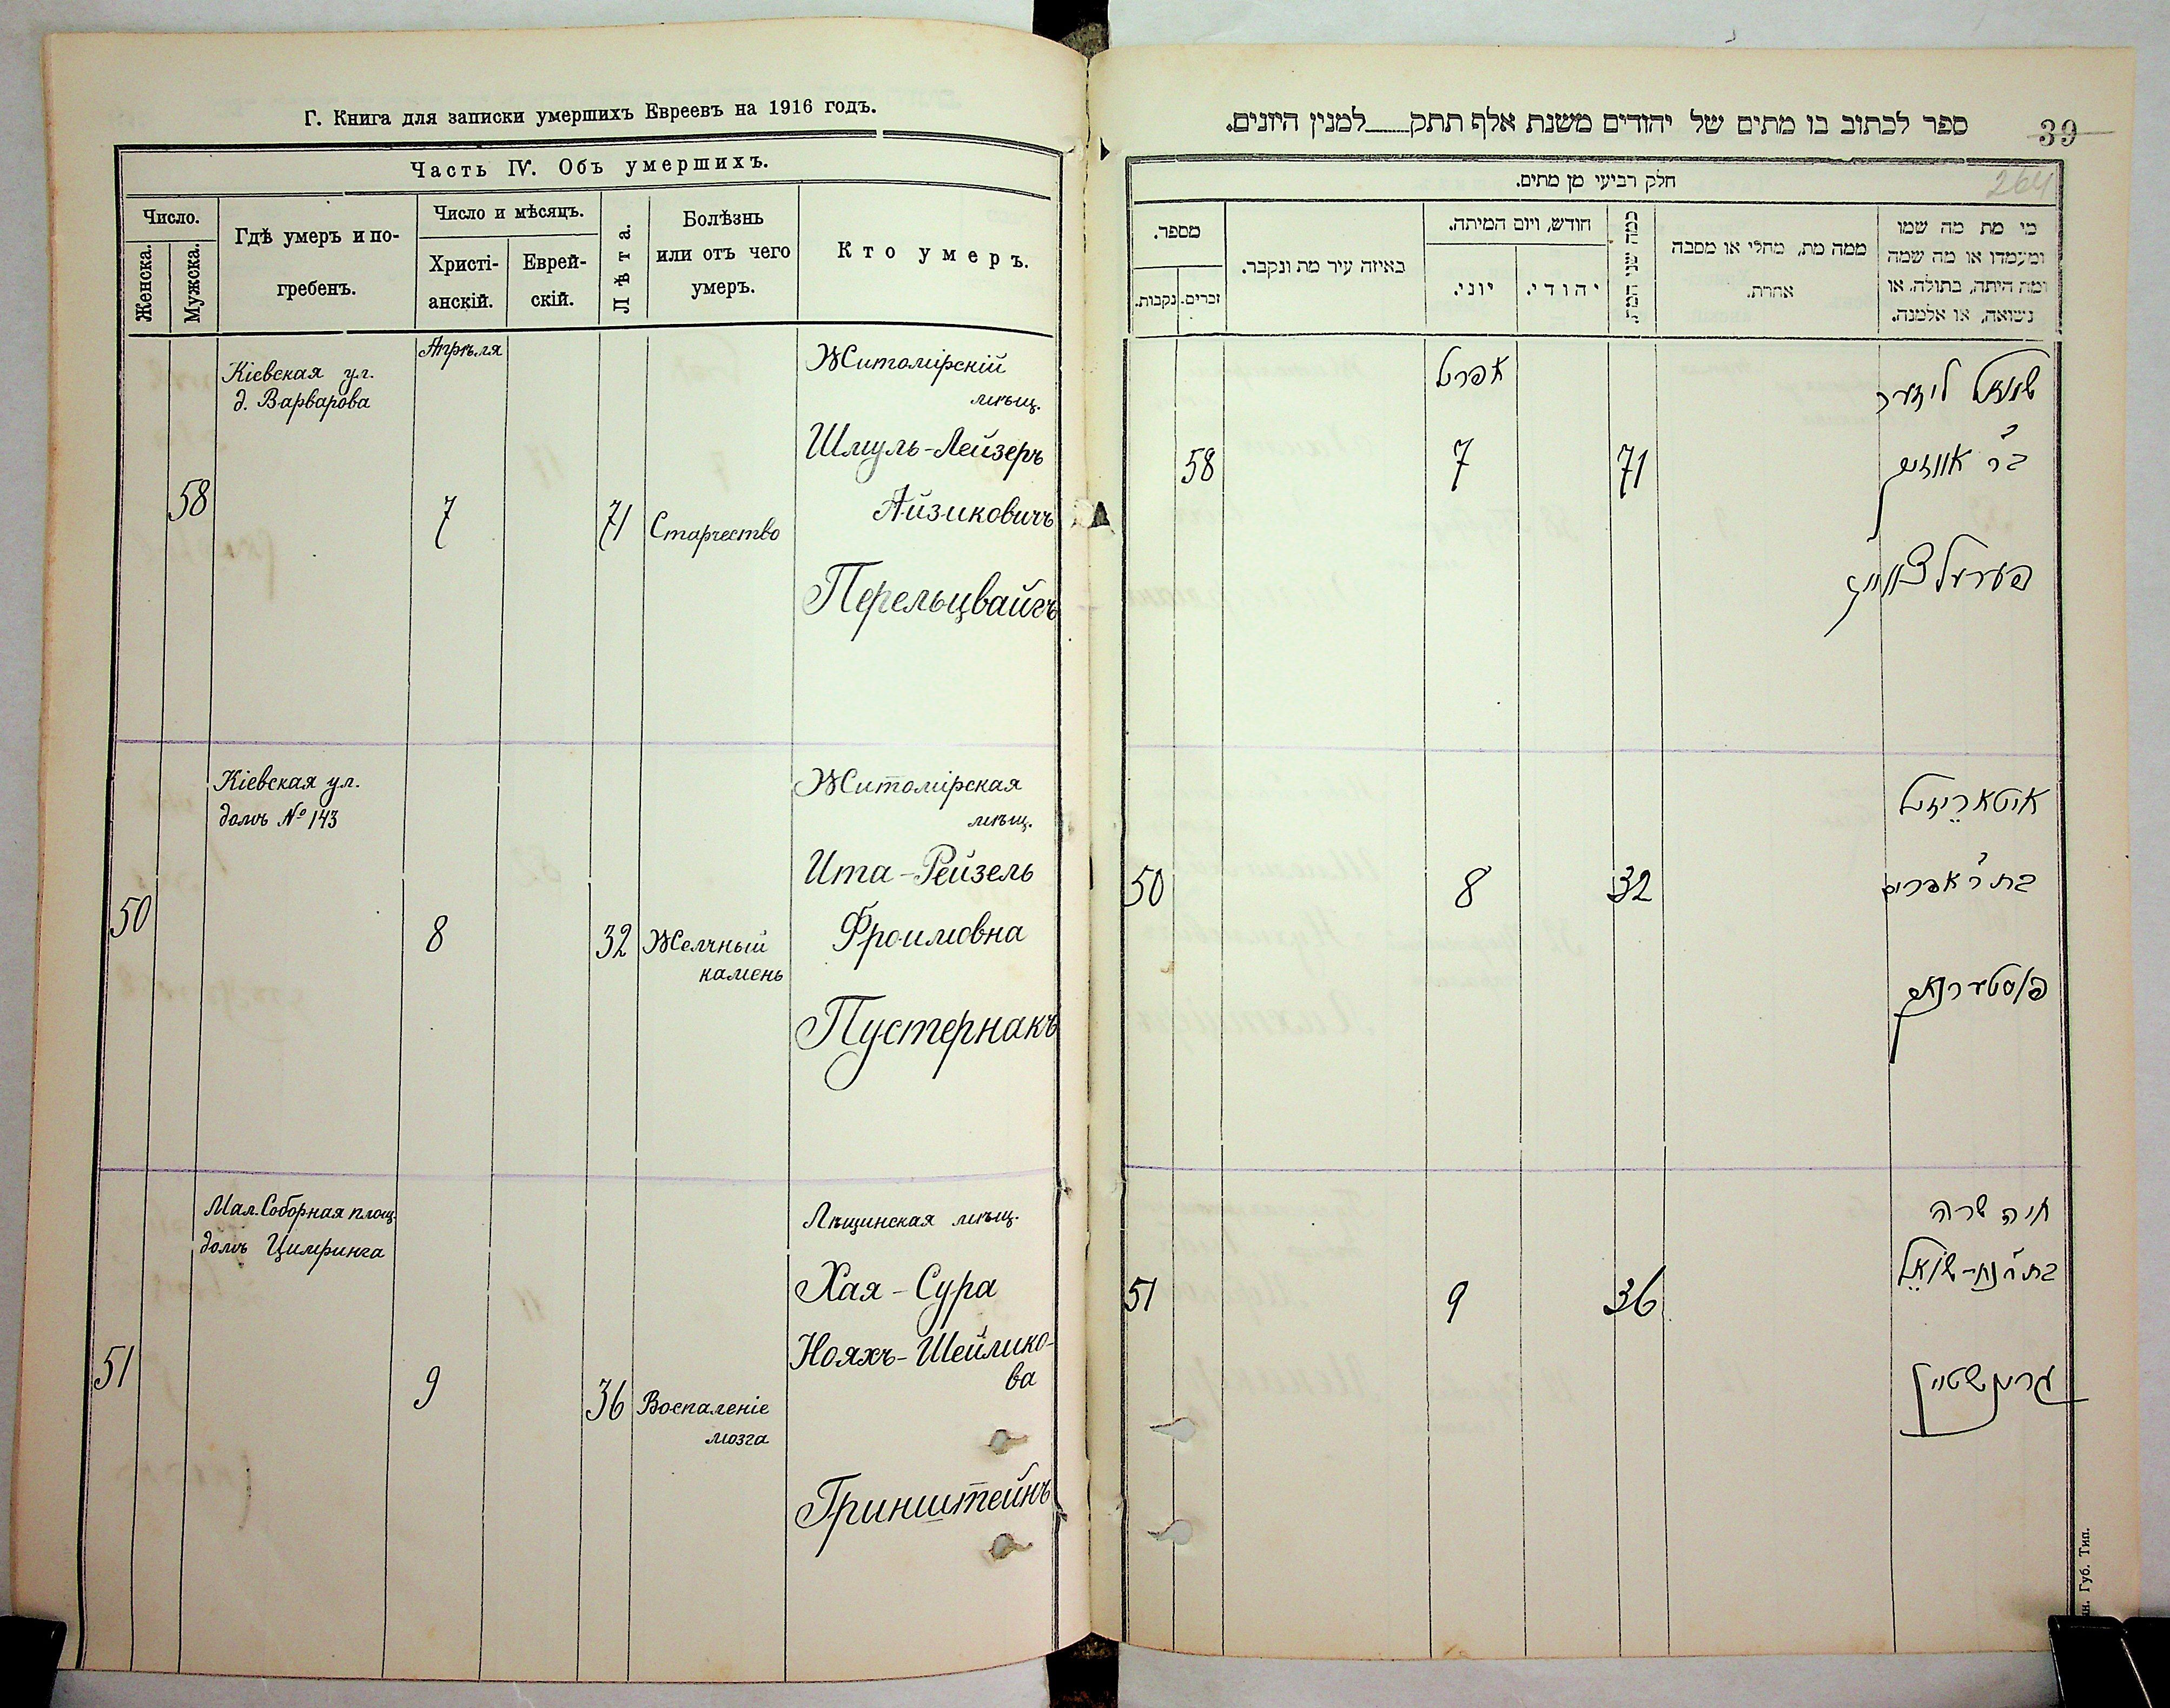 Г. Книга для записки умершихъ Евреевъ на 1916 годъ.
Часть IV. Объ умершихъ.
Число.
Женска.
Мужска.
Гдѣ умеръ и по-
гребенъ.
Число и мѣсяцъ.
Христі-
анскій.
Еврей-
скій.
Лѣта.
Болѣзнь
или отъ чего
умеръ.
Кто умеръ.
Апрѣля
Кіевская ул.
д. Варварова
58
7
71
Старчество
Житомірскій
мѣщ.
Шмуль-Лейзеръ
Айзиковичъ
Перельцвайгъ
Кіевская ул.
домъ № 143
50
8
32
Желчный
камень
Житомірская
мѣщ.
Ита-Рейзель
Фроимовна
Пустернакъ
Мал. Соборная площ.
домъ Цимринга
51
9
36
Воспаленіе
мозга
Лещинская мѣщ.
Хая-Сура
Нояхъ-Шейлико-
ва
Гринштейнъ
ספר לכתוב בו מתים של יהודים משנת אלף תתק למנין היונים.
39
264
חלק רביעי מן מתים.
מי מת מה שמו
ומעמדו או מה שמה
ומה היתה, בתולה, או
נשואה, או אלמנה.
ממה מת, מחלי או מסבה
אחרת.
כמה שני המת
חודש, ויום המיתה.
יהודי.
יוני.
באיזה עיר מת ונקבר.
מספר.
זכרים.
נקבות.
אפריל
58
7
71
שמואל ליזער
בר אייזיק
פערעלצווייג
50
8
32
איטא רייזיל
בת ר אפרים
פוסטערנאק
51
9
36
חיה שרה
בת ר נח-שואל
גרינשטיין
Губ. Тип.